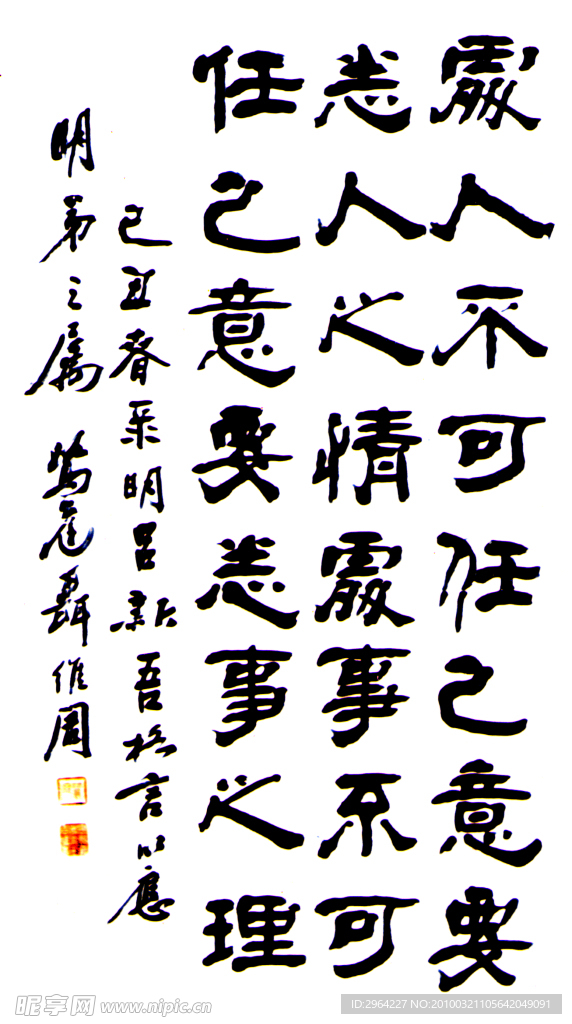 處人不可任己意要
悉人之情處事不可
任己意要悉事之理
己丑春来明吕新吾格言以應
明弟之属 聶維周
昵享网 www.nipic.cn
ID:2964227 NO:20100321105642049091